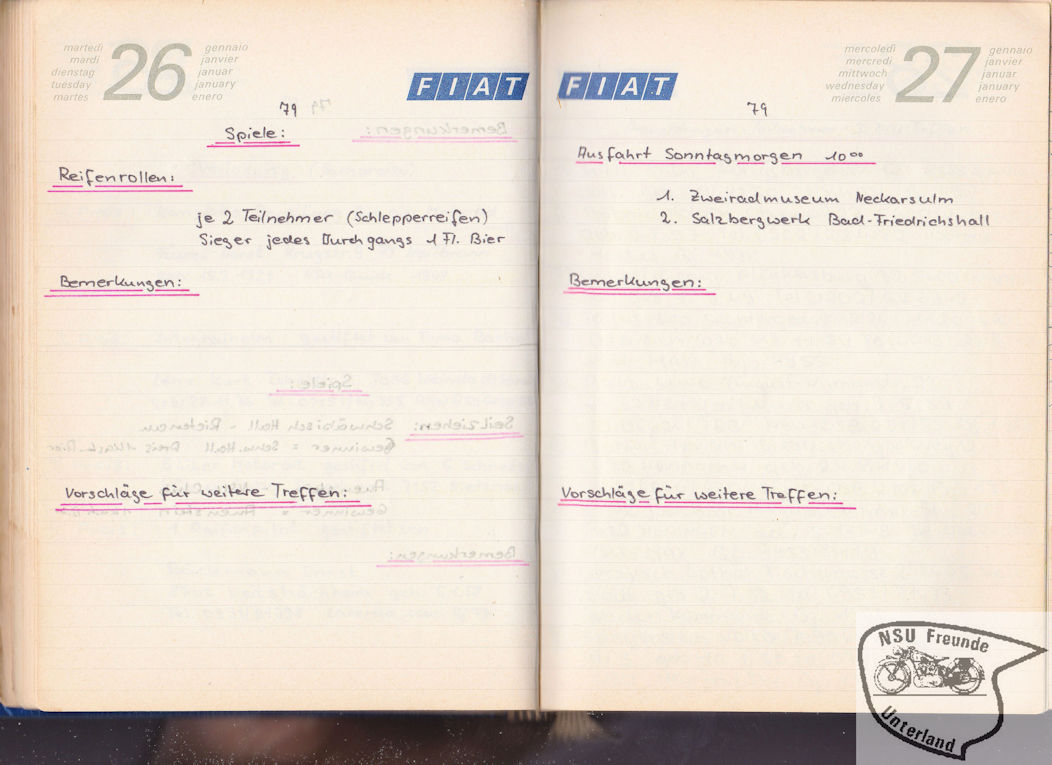 martedì
mardi
dienstag
tuesday
martes
26
gennaio
janvier
januar
january
enero
FIAT
79
Spiele:
Reifenrollen:
je 2 Teilnehmer (Schlepperreifen)
Sieger jedes Durchgangs 1 Fl. Bier
Bemerkungen:
Vorschläge für weitere Treffen:
FIAT
mercoledì
mercredi
mittwoch
wednesday
miercoles
27
gennaio
janvier
januar
january
enero
79
Ausfahrt Sonntagmorgen 10⁰⁰
1. Zweiradmuseum Neckarsulm
2. Salzbergwerk Bad-Friedrichshall
Bemerkungen:
Vorschläge für weitere Treffen:
NSU Freunde
Unterland